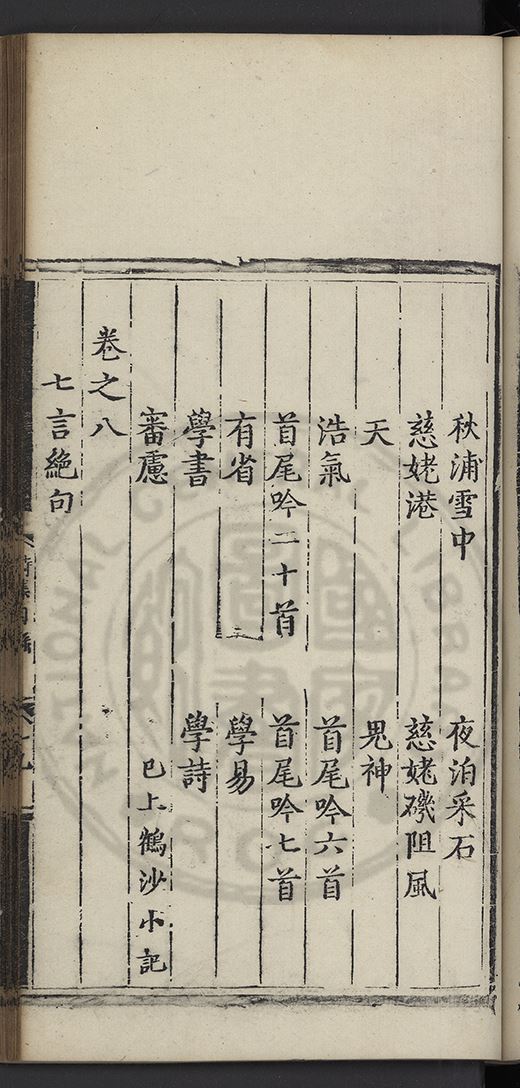 秋浦雪中　夜泊采石
慈姥港　慈姥磯阻風
天　鬼神
浩氣　首尾吟六首
首尾吟二十首　首尾吟七首
有省　學易
學書　學詩
審慮　已上鶴沙小記
卷之八
七言絕句